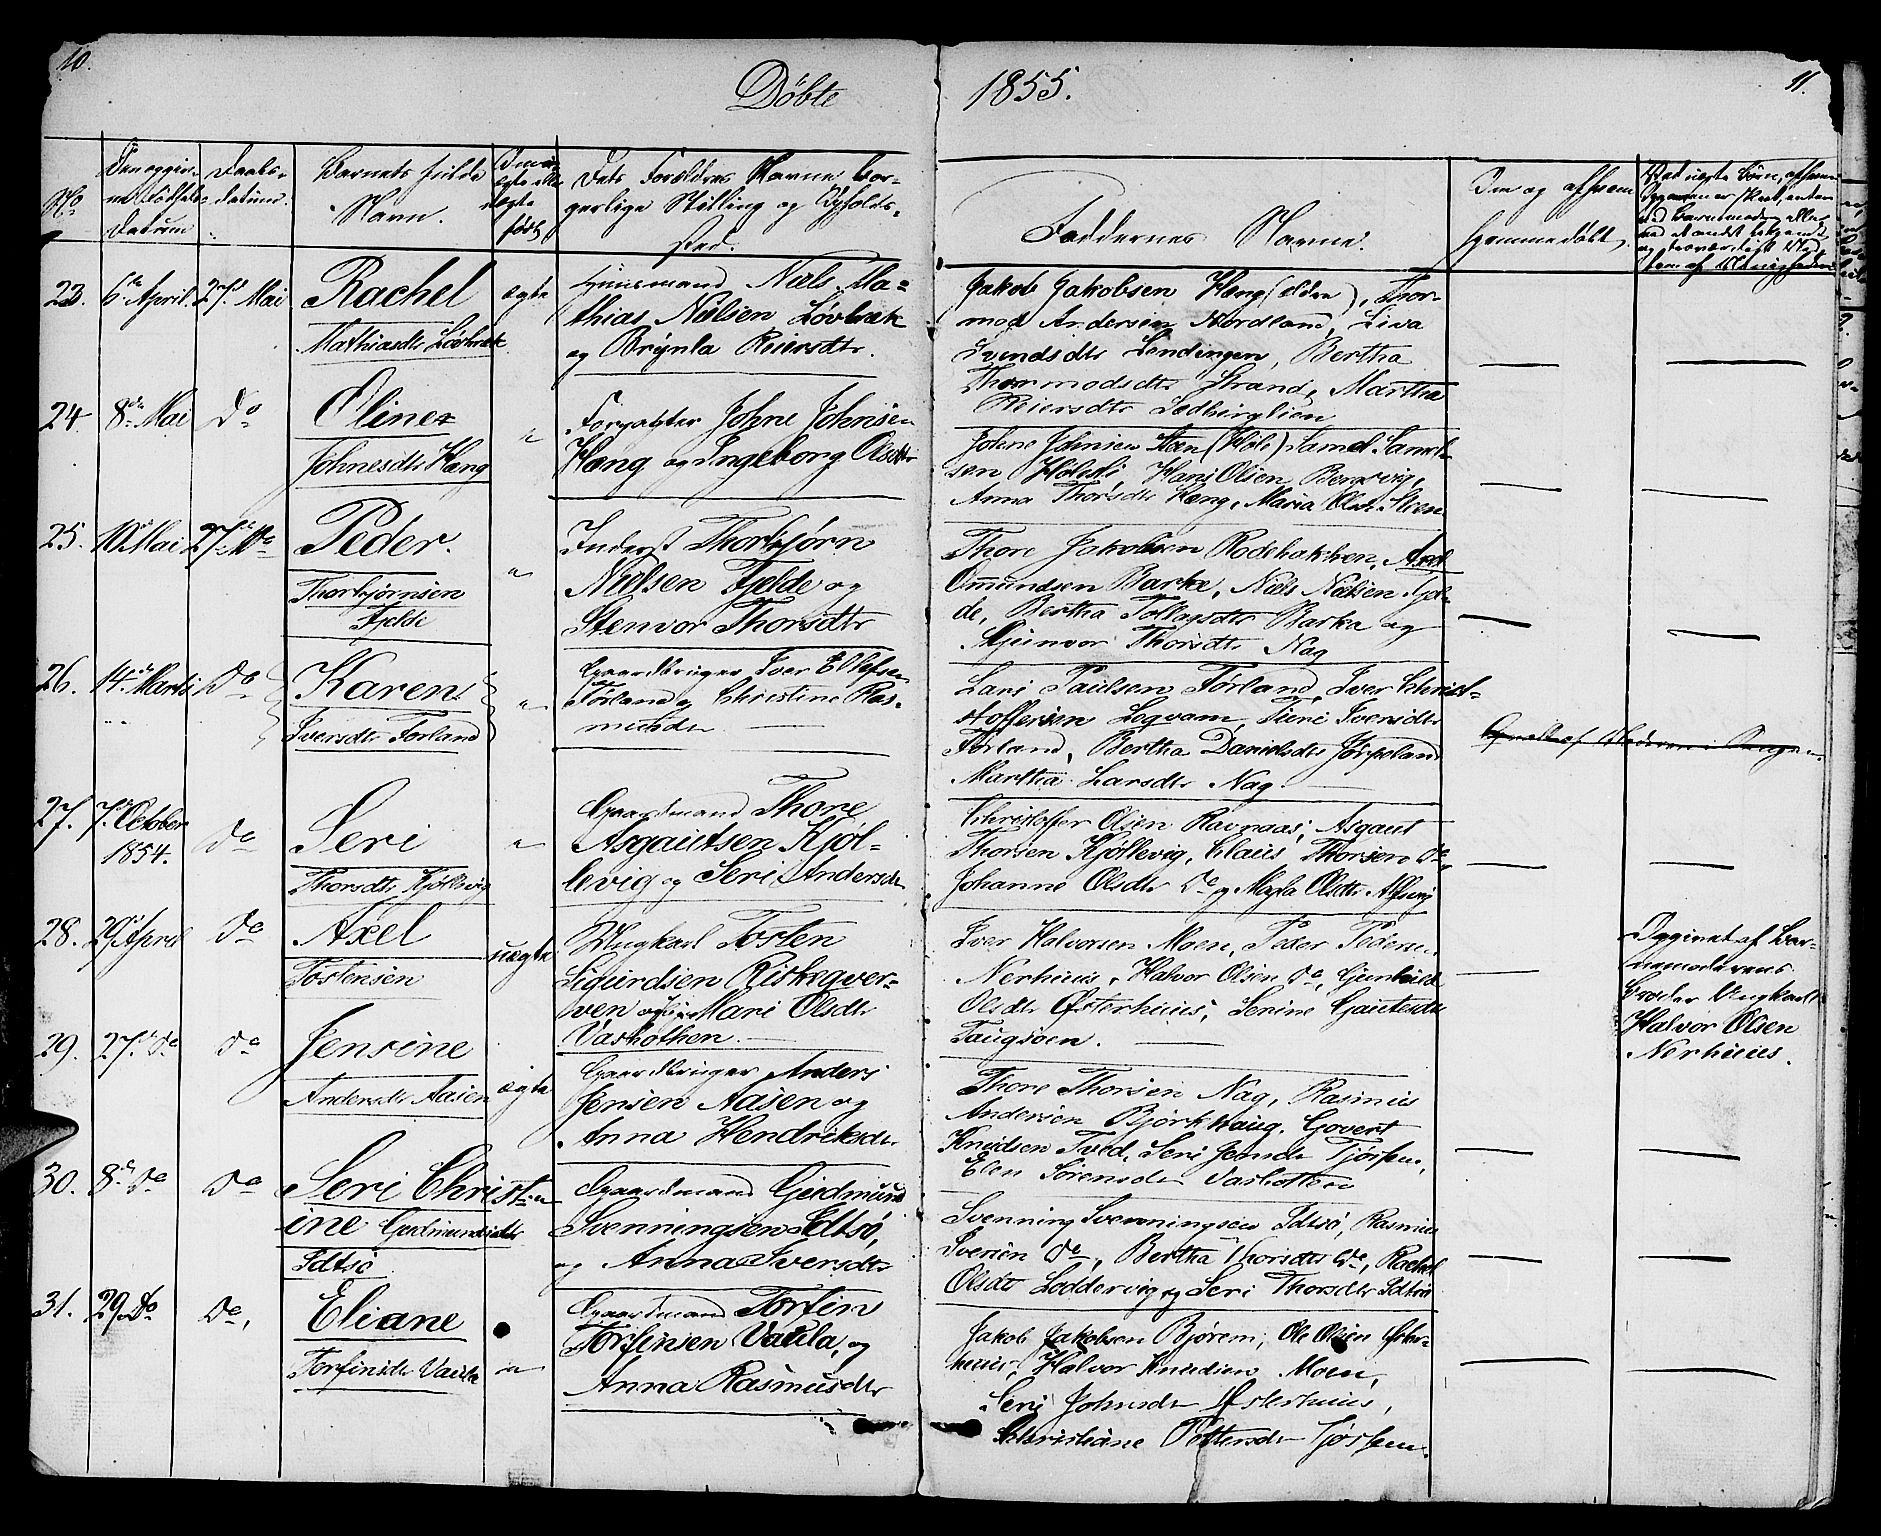 10.
Døbte 1855.
11.
No
Den opgiv-
ne Fødsels-
Datum
Daabs-
datum.
Barnets fulde
Navn.
Om
egte eller
uegte
født
Dets Forældres Navne bor-
gerlige Stilling og Opholds-
sted.
Faddernes Navne.
Om og af hvem
hjemmedøbt.
23. 6te April. 27de Mai
Rachel
Mathiasdtr Løvbræk
ægte
Huusmand Niels Ma-
thias Nielsen Løvbræk
og Brynla Reiersdtr.
Jakob Jakobsen Hæng (Eldre), Thor-
mod Andersen Nordland, Liva
Svendsdtr Lendingen, Bertha
Thormodsdtr Strand, Martha
Reiersdtr
24. 8de Mai Do
Oline
Johnesdtr Hæng
"
Forpagter Johne Johnsen
Hæng og Ingeborg Olsdtr
Johne Johnsen Steen (Høle) Samel Samel-
sen Høleli, Hans Olsen Bergevig,
Anna Thorsdtr Hæng, Maria Olsdtr Steen
25. 10de Mai 27de Do
Peder.
Thorbjørnsen
Fjelde
"
Inderst Thorbjørn
Nielsen Fjelde og
Stenvor Thorsdtr
Thore Jakobsen Rodebakken, Axel
Omundsen Barke, Niels Nielsen Fjel-
de, Bertha Tollagsdtr Barka og
Gunvor Thorsdtr Nag
26. 14de Marts Do
Karen
Iversdtr Førland
"
Gaardbruger Iver Ellefsen
Førland og Christine Ras-
musdtr
Lars Paulsen Førland, Iver Christ-
stoffersen Legvam, Siri Iversdtr
Førland, Bertha Danielsdtr Jørpeland
Martha Larsdtr Nag.
27. 7de October
1854.
Do
Seri
Thorsdtr Kjøllevig
"
Gaardmand Thore
Asgautsen Kjøl-
levig og Seri Andersdtr
Christoffer Olsen Ravnaas, Asgaut
Thorsen Kjøllevig, Claus Thorsen Do
Johanne Olsdtr Do og Magla Olsdtr Alsvig
28. 29de April Do
Axel
Tostensen
uægte
Ungkarl Tosten
Sigurdsen Riskeqver-
ven og Pige Mari Olsdtr
Vasbotten.
Iver Halvorsen Moen, Peder Pedersen
Nerhuus, Halvor Olsen Do, Gunhild
Olsdtr Østerhuus, Serine Gautesdtr
Taugsoen.
Opgivet af Bar-
nemoderens
Broder Ungkarl
Halvor Olsen
Nerhuus.
29. 27de Do Do
Jensine
Andersdtr Aasen
ægte
Gaardbruger Anders
Jensen Aasen og
Anna Hendriksdtr
Thore Thorsen Nag, Rasmus
Andersen Bjørkhaug, Govert
Knudsen Tved, Seri Jensdtr Tjøstem,
Elen Sørensdtr Vasbotten
30. 8de Do Do
Seri Christ-
ine Gudmundsdtr
Idtsø
"
Gaardmand Gudmund
Svenningsen Idtsø,
og Anna Iversdtr
Svenning Svenningsen Idtsø, Rasmus
Iversen Do, Bertha Thorsdtr Do, Rachel
Olsdtr Loddervig og Seri Thorsdtr Idtsø
31. 29de Do Do,
Eliane
Torfinsdtr Vaula
"
Gaardmand Torfin
Torfinsen Vaula, og
Anna Rasmusdtr
Jakob Jakobsen Bjørem, Ole Olsen Øster-
huus, Halvor Knudsen Moen,
Seri Johnsdtr Østerhuus,
Christiane Pettersdtr Tjøstem.